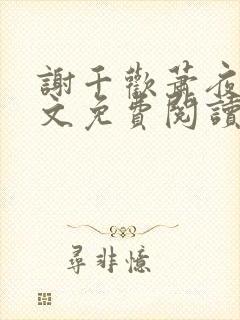 謝千歡蕭夜
文免費閱讀
尋非憶